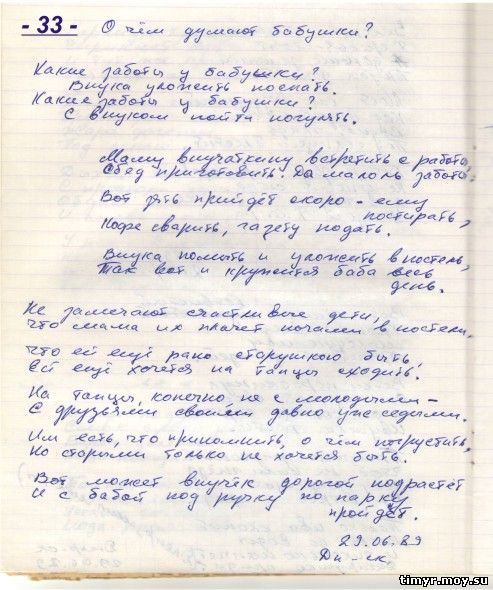 - 33 -
О чём думают бабушки?
Какие заботы у бабушки?
Внука уложить поспать.
Какие заботы у бабушки?
С внуком пойти погулять.
Маму внучаткину встретить с работы,
Обед приготовить. Да мало ль заботы.
Вот зять прийдёт скоро - ему
постирать,
Кофе сварить, газету подать.
Внука помыть и уложить в постель,
Так вот и кружится баба весь
день.
Не замечают счастливые дети,
что мама их плачет ночами в постели,
Что ей ещё рано старушкою быть,
Ей ещё хочется на танцы сходить!
На танцы, конечно не с молодыми -
С друзьями своими давно уже седыми.
Им есть, что припомнить, о чём погрустить,
Но старыми только не хочется быть.
Вот может внучек дорогой подрастёт
И с бабой под ручку по парку
пройдёт.
29.06.89
Ди-ск.
timyr.moy.su